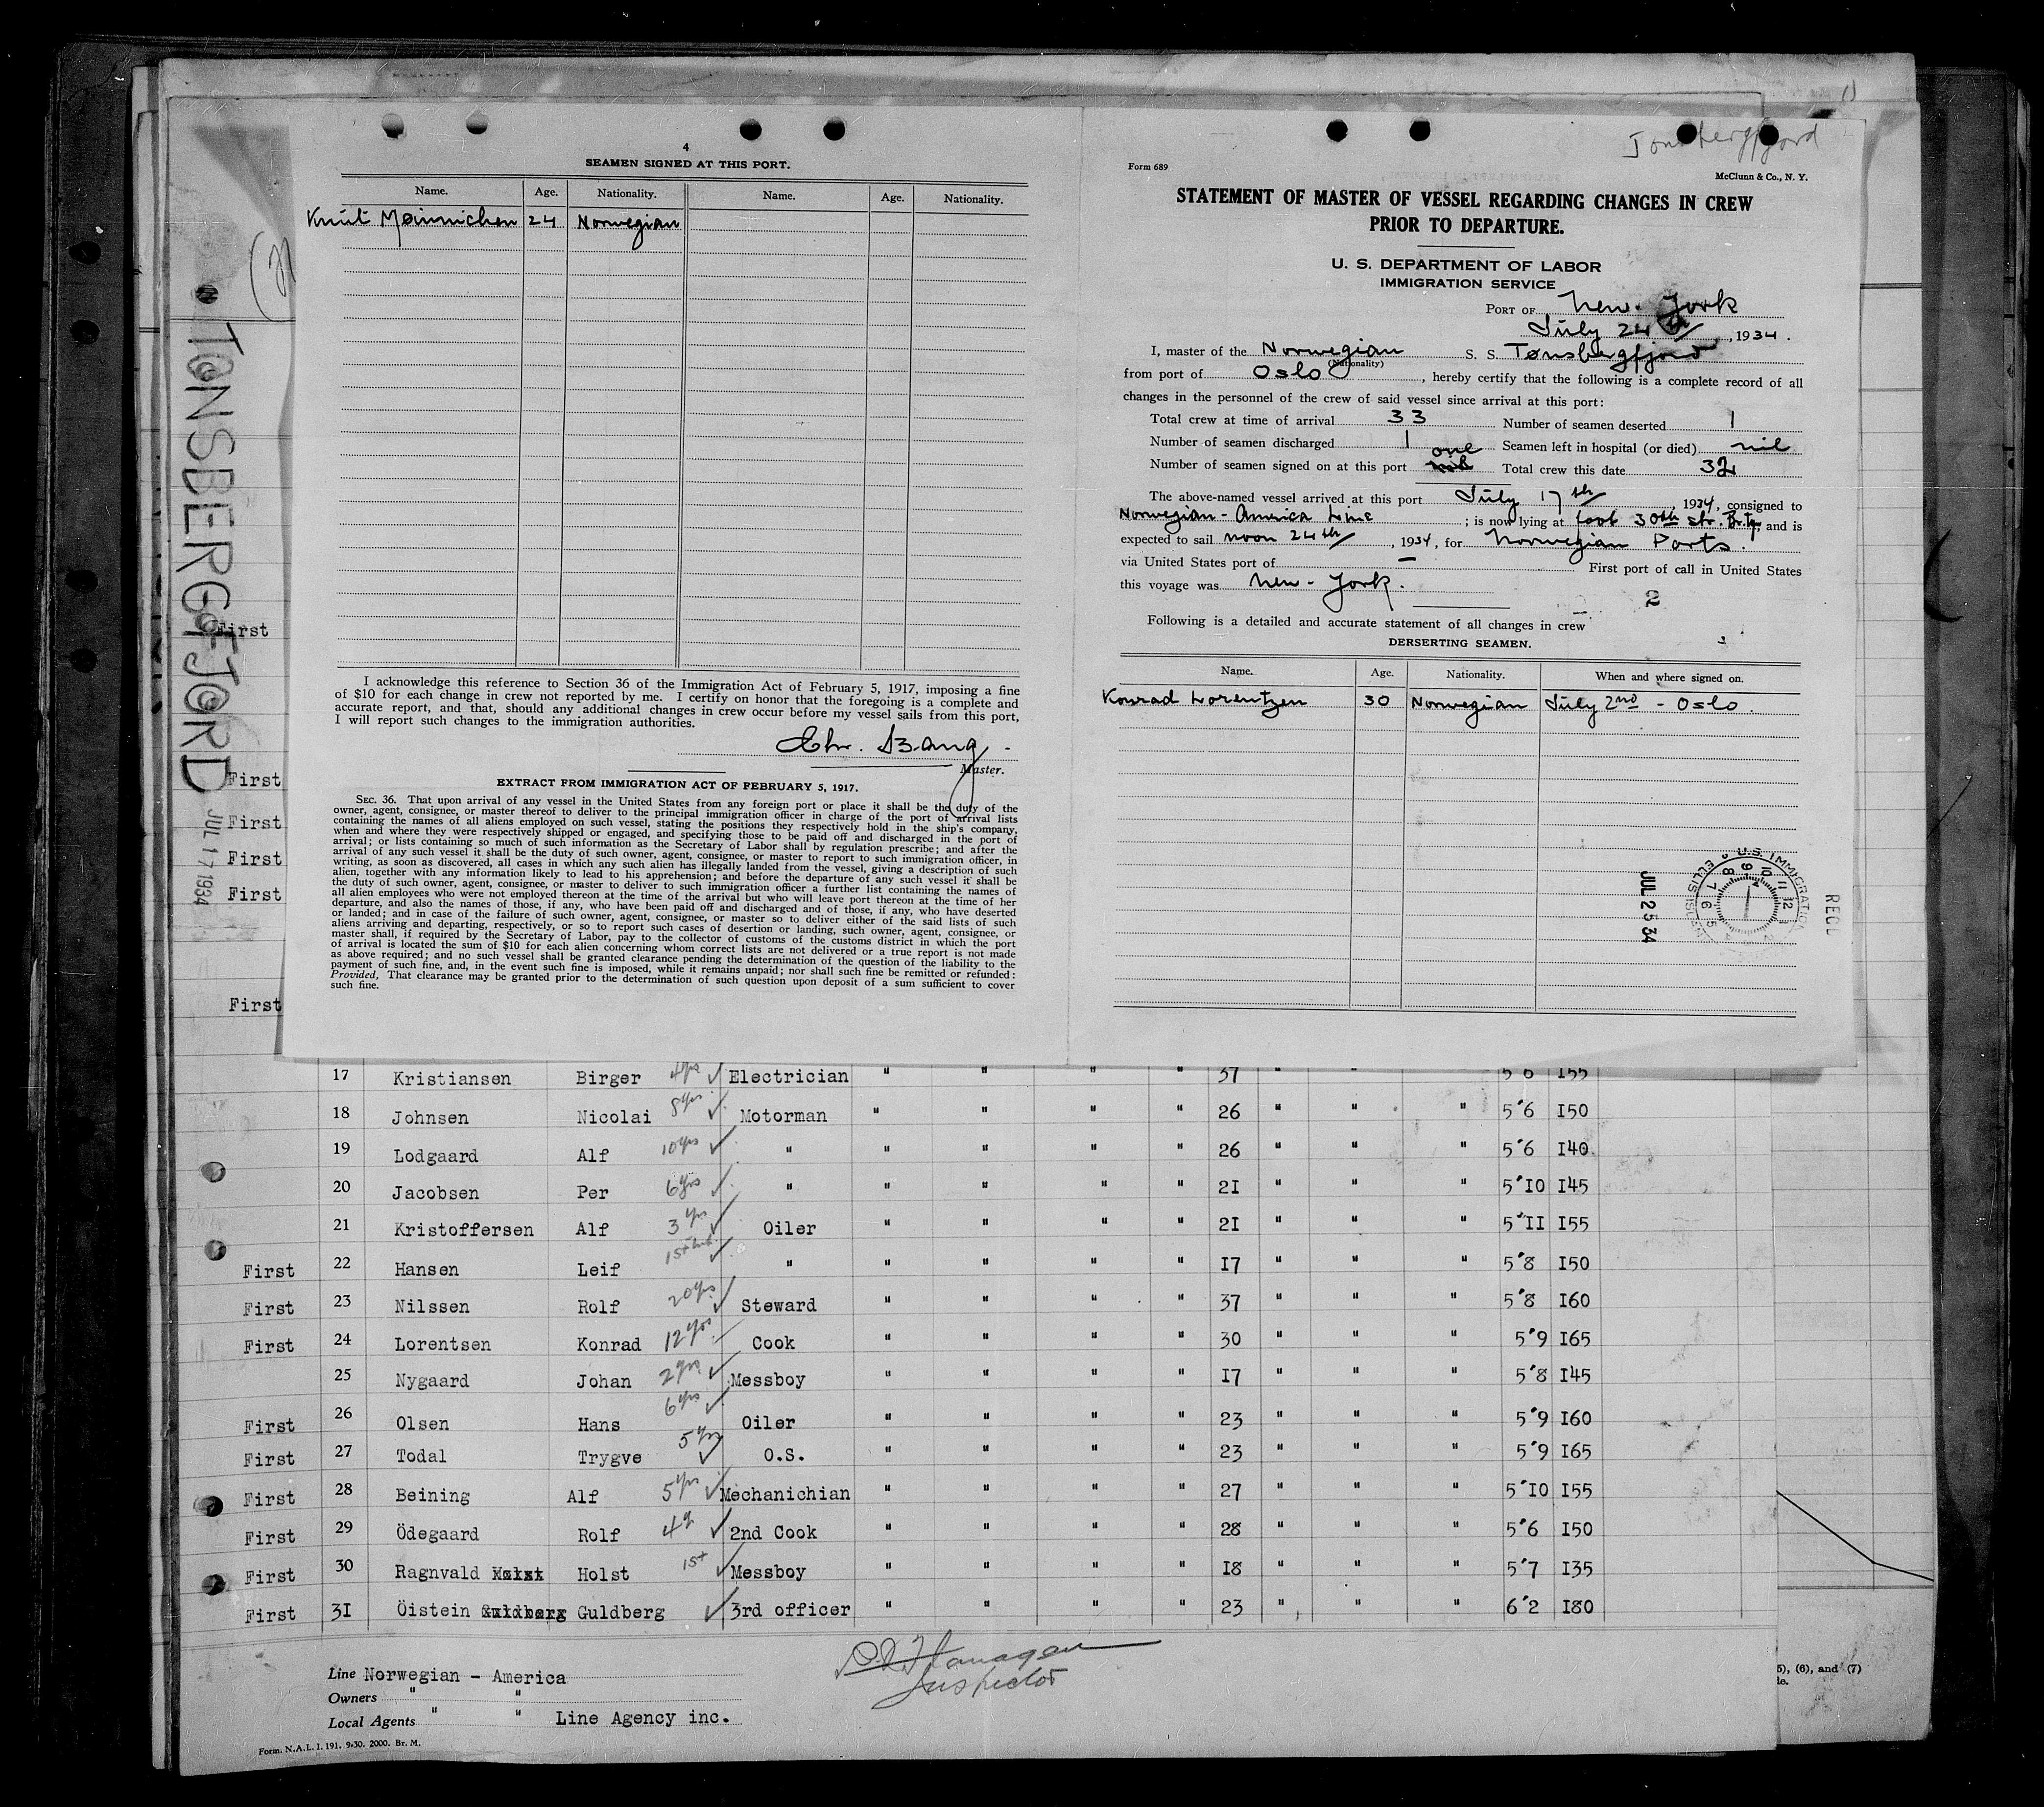 4
SEAMEN SIGNED AT THIS PORT.
Name. Age. Nationality. Name. Age. Nationality.
Knut Møinnichen 24 Norwegian
I acknowledge this reference to Section 36 of the Immigration Act of February 5, 1917, imposing a fine
of $10 for each change in crew not reported by me. I certify on honor that the foregoing is a complete and
accurate report, and that, should any additional changes in crew occur before my vessel sails from this port,
I will report such changes to the immigration authorities.
Chr. Bang
Master.
EXTRACT FROM IMMIGRATION ACT OF FEBRUARY 5, 1917.
SEC. 36. That upon arrival of any vessel in the United States from any foreign port or place it shall be the duty of the
owner, agent, consignee, or master thereof to deliver to the principal immigration officer in charge of the port of arrival lists
containing the names of all aliens employed on such vessel, stating the positions they respectively hold in the ship's company,
when and where they were respectively shipped or engaged, and specifying those to be paid off and discharged in the port of
arrival; or lists containing so much of such information as the Secretary of Labor shall by regulation prescribe; and after the
arrival of any such vessel it shall be the duty of such owner, agent, consignee, or master to report to such immigration officer, in
writing, as soon as discovered, all cases in which any such alien has illegally landed from the vessel, giving a description of such
alien, together with any information likely to lead to his apprehension; and before the departure of any such vessel it shall be
the duty of such owner, agent, consignee, or master to deliver to such immigration officer a further list containing the names of
all alien employees who were not employed thereon at the time of the arrival but who will leave port thereon at the time of her
departure, and also the names of those, if any, who have been paid off and discharged and of those, if any, who have deserted
or landed; and in case of the failure of such owner, agent, consignee, or master so to deliver either of the said lists of such
aliens arriving and departing, respectively, or so to report such cases of desertion or landing, such owner, agent, consignee, or
master shall, if required by the Secretary of Labor, pay to the collector of customs of the customs district in which the port
of arrival is located the sum of $10 for each alien concerning whom correct lists are not delivered or a true report is not made
as above required; and no such vessel shall be granted clearance pending the determination of the question of the liability to the
payment of such fine, and, in the event such fine is imposed, while it remains unpaid; nor shall such fine be remitted or refunded:
Provided, That clearance may be granted prior to the determination of such question upon deposit of a sum sufficient to cover
such fine.
Tonsbergfjord
Form 689
McClunn & Co., N. Y.
STATEMENT OF MASTER OF VESSEL REGARDING CHANGES IN CREW
PRIOR TO DEPARTURE.
U. S. DEPARTMENT OF LABOR
IMMIGRATION SERVICE
PORT OF New-York
July 24th, 1934.
I, master of the Norwegian S. S. Tønsbergfjord
(Nationality)
from port of Oslo, hereby certify that the following is a complete record of all
changes in the personnel of the crew of said vessel since arrival at this port:
Total crew at time of arrival 33 Number of seamen deserted 1
Number of seamen discharged 1 Seamen left in hospital (or died) nil
Number of seamen signed on at this port nil one Total crew this date 32
The above-named vessel arrived at this port July 17th 1934, consigned to
Norwegian-America Line; is now lying at foot 30th str. B.ty. and is
expected to sail noon 24th, 1934, for Norwegian Ports.
via United States port of — First port of call in United States
this voyage was New-York.
2
Following is a detailed and accurate statement of all changes in crew
DERSERTING SEAMEN.
Name. Age. Nationality. When and where signed on.
Konrad Lorentzen 30 Norwegian July 2nd - Oslo.
U.S. IMMIGRATION
ELLIS ISLAND
JUL 25 34
REC'D
TONSBERGFJORD
JUL 17 1934
First
First
First
First
First
First
17 Kristiansen Birger 4yrs Electrician " " " " 37 " " 5'6 I55
18 Johnsen Nicolai 8yrs Motorman " " " " 26 " " " 5'6 I50
19 Lodgaard Alf 10yrs " " " " " 26 " " " 5'6 I40
20 Jacobsen Per 6yrs " " " " " 2I " " " 5'I0 I45
21 Kristoffersen Alf 3yrs Oiler " " " " 2I " " " 5'II I55
First 22 Hansen Leif " " " " " I7 " " " 5'8 I50
First 23 Nilssen Rolf 20yrs Steward " " " " 37 " " " 5'8 I60
First 24 Lorentsen Konrad 12yrs Cook " " " " 30 " " " 5'9 I65
25 Nygaard Johan 2yrs Messboy " " " " I7 " " " 5'8 I45
First 26 Olsen Hans 6yrs Oiler " " " " 23 " " " 5'9 I60
First 27 Todal Trygve 5yrs O.S. " " " " 23 " " " 5'9 I65
First 28 Beining Alf 5yrs Mechanichian " " " " 27 " " " 5'I0 I55
First 29 Ödegaard Rolf 4y 2nd Cook " " " " 28 " " " 5'6 I50
First 30 Ragnvald Holst 1st Messboy " " " " I8 " " " 5'7 I35
First 3I Öistein Guldberg 3rd officer " " " " 23 " " " 6'2 I80
Flanagan
Inspector
Line Norwegian - America
Owners " "
Local Agents " " Line Agency inc.
Form. N.A.L. I. 191. 9-30. 2000. Br. M.
5), (6), and (7)